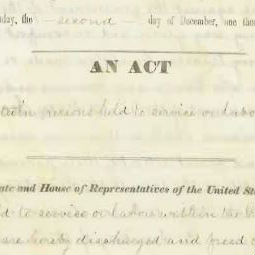 day, the - second - day of December, one thou
AN ACT
persons held to service or labor
ate and House of Representatives of the United Sta
d to service or labor within the
are hereby discharged and freed